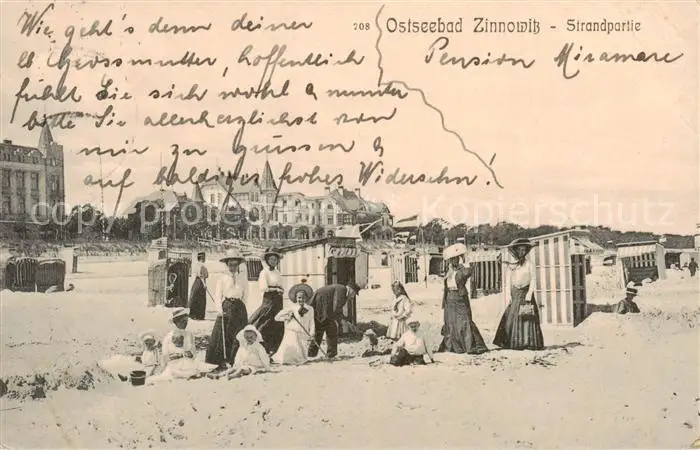 708 Ostseebad Zinnowitz - Strandpartie
Pension Miramare
Wie geht's denn deiner
lb Grossmutter, hoffentlich
fühlt Sie sich wohl & munter
bitte Sie allerherzlichst von
mir zu grüssen &
auf baldiges frohes Widersehn!
Kopierschutz
Kopierschutz